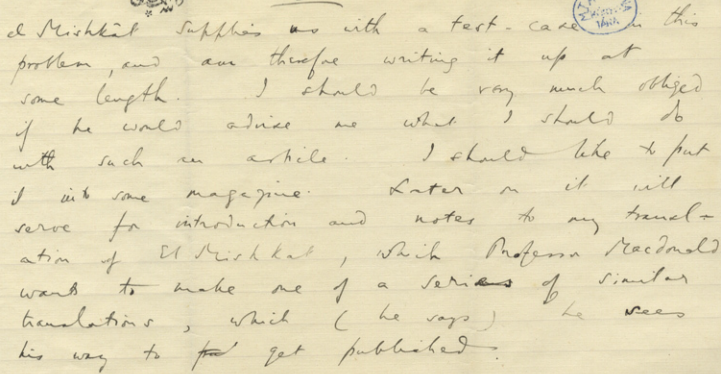 el Mishkât supplies us with a test-case in this
problem, and am therefore writing it up at
some length. I should be very much obliged
if he would advise me what I should do
with such an article. I should like to put
it into some magazine. Later on it will
serve for introduction and notes to my transl-
ation of El Mishkat, which Professor Macdonald
wants to make one of a series of similar
translations, which (he says) he sees
his way to get published.